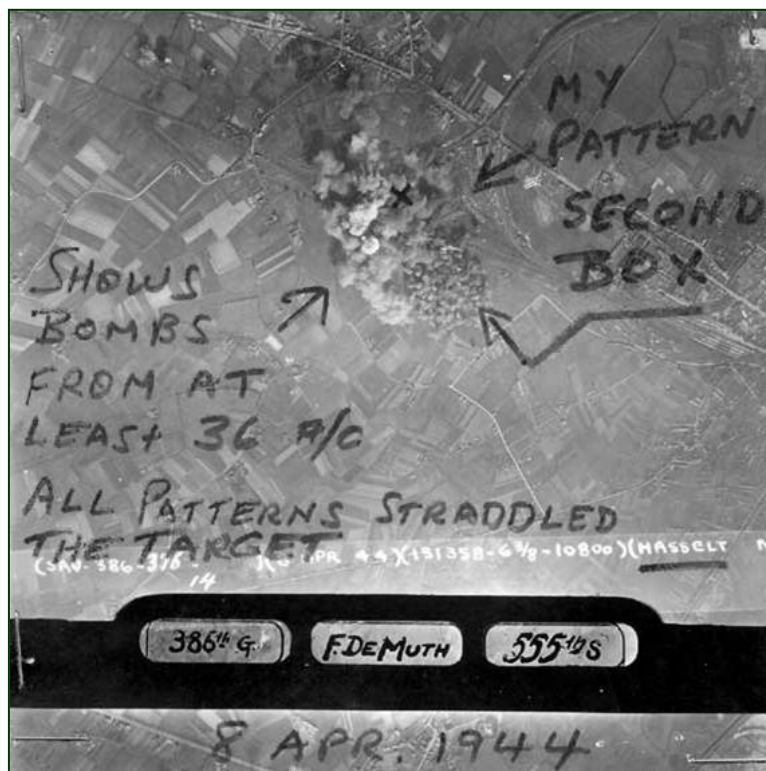 MY
PATTERN
SECOND
BOX
X
SHOWS
BOMBS
FROM AT
LEAST 36 A/C
ALL PATTERNS STRADDLED
THE TARGET
(SAV- 386-
14 APR 44)(131358-6 3/8-10800)(HASSELT
386th G.
F. DEMUTH
555th S
8 APR. 1944